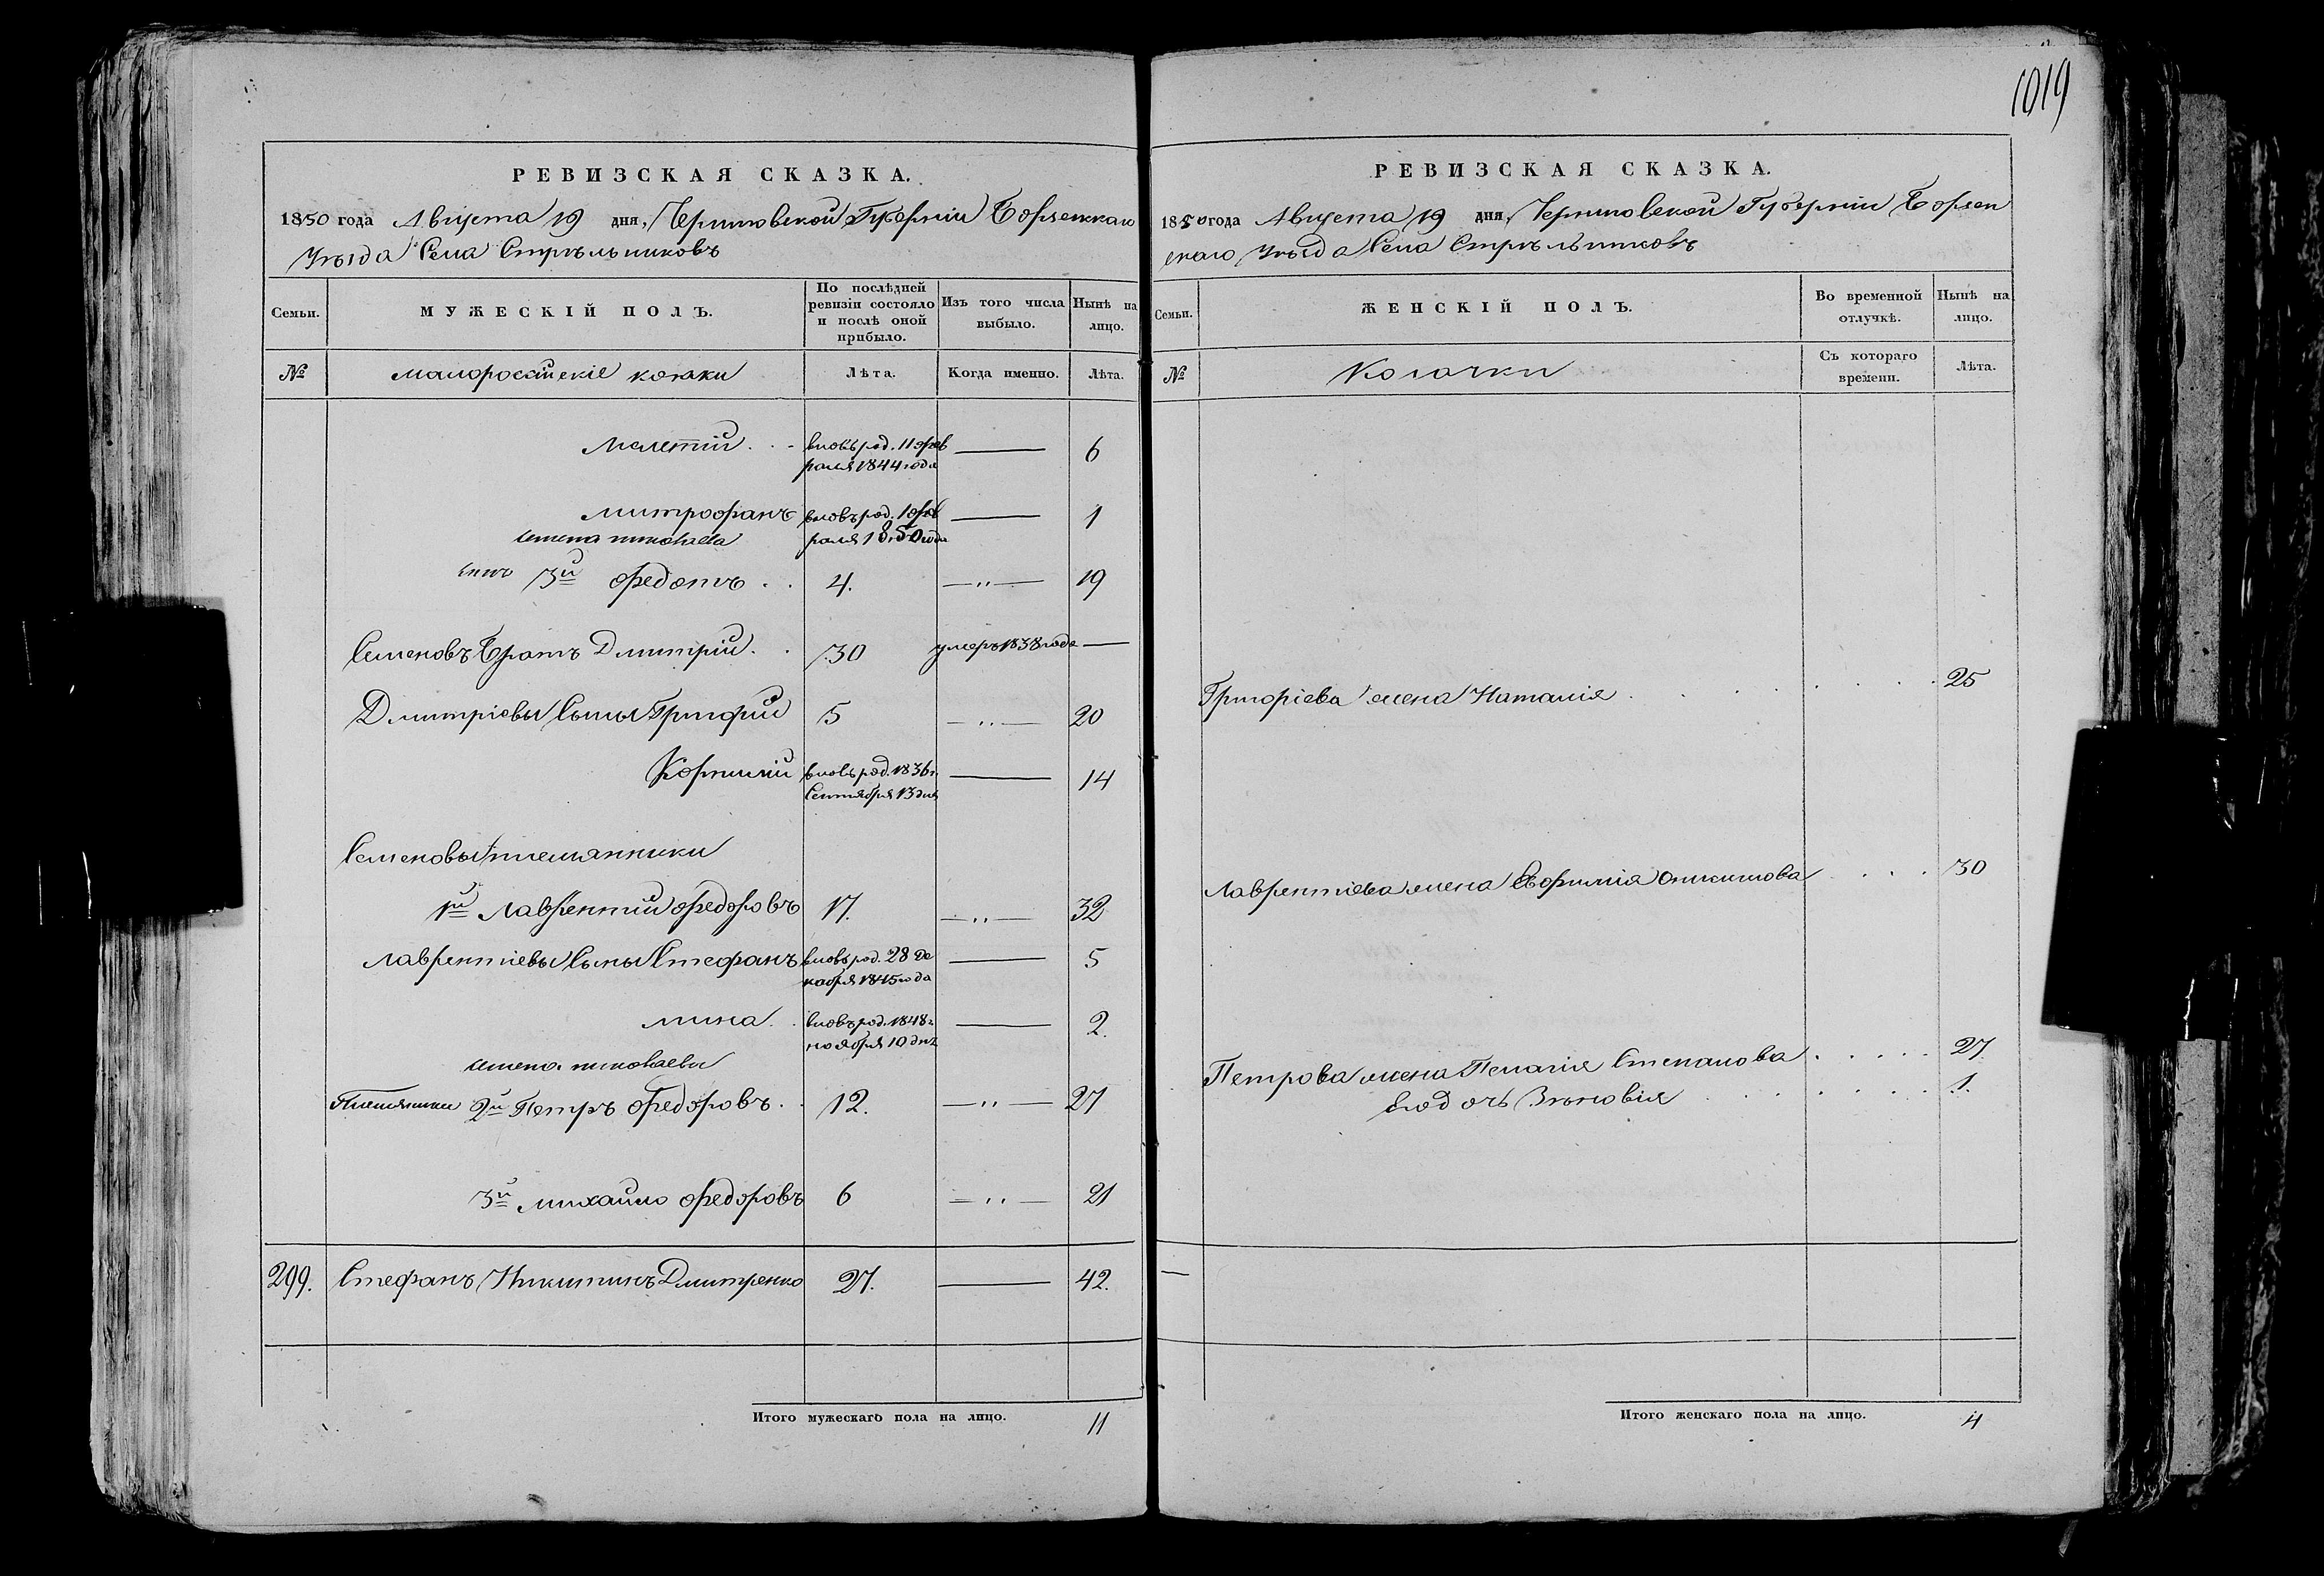 1019
РЕВИЗСКАЯ СКАЗКА.
1850 года Августа 19 дня, Черниговской Губерніи Борзенскаго
Уѣзда Села Стрѣльниковъ
Семьи. МУЖЕСКІЙ ПОЛЪ. По послѣдней ревизіи состояло и послѣ оной прибыло. Изъ того числа выбыло. Нынѣ на лицо.
№ Малороссійскіе козаки Лѣта. Когда именно. Лѣта.
Мелетій . . вновь род. 11 фев 6
раля 1844 года
Митрофанъ вновь род. 1 фев 1
раля 1850 года
Семена Николаева
сынъ 3й Федотъ . . 4. — „ — 19
Семеновъ Братъ Дмитрій . . 30 умеръ 1838 года —
Дмитріевы Сыны Григорій 5 — „ — 20
Корнилій вновь род. 1836 г. 14
Сентября 13 дня
Семеновы племянники
1й Лаврентій Федоровъ 17. — „ — 32
Лаврентіевы Сыны Стефанъ вновь род. 28 Де 5
кабря 1845 года
Мина . . вновь род. 1848 г. 2.
ноября 10 дня
Семена Николаева
Племянники 2й Петръ Федоровъ . . 12. — „ — 27
3й Михайло Федоровъ 6 — „ — 21
299. Стефанъ Никитинъ Дмитренко 27. — 42.
Итого мужескаго пола на лицо. 11
РЕВИЗСКАЯ СКАЗКА.
1850 года Августа 19 дня, Черниговской Губерніи Борзен
скаго Уѣзда Села Стрѣльниковъ
Семьи. ЖЕНСКІЙ ПОЛЪ. Во временной отлучкѣ. Нынѣ на лицо.
№ Козачки Съ котораго времени. Лѣта.
Григоріева жена Наталія . . . . . . 25
Лаврентіева жена Евфимія Онисимова . . . 30
Петрова жена Пелагія Степанова . . . . . 27
его дочь Зѣновія . . . . . . 1.
—
Итого женскаго пола на лицо. 4